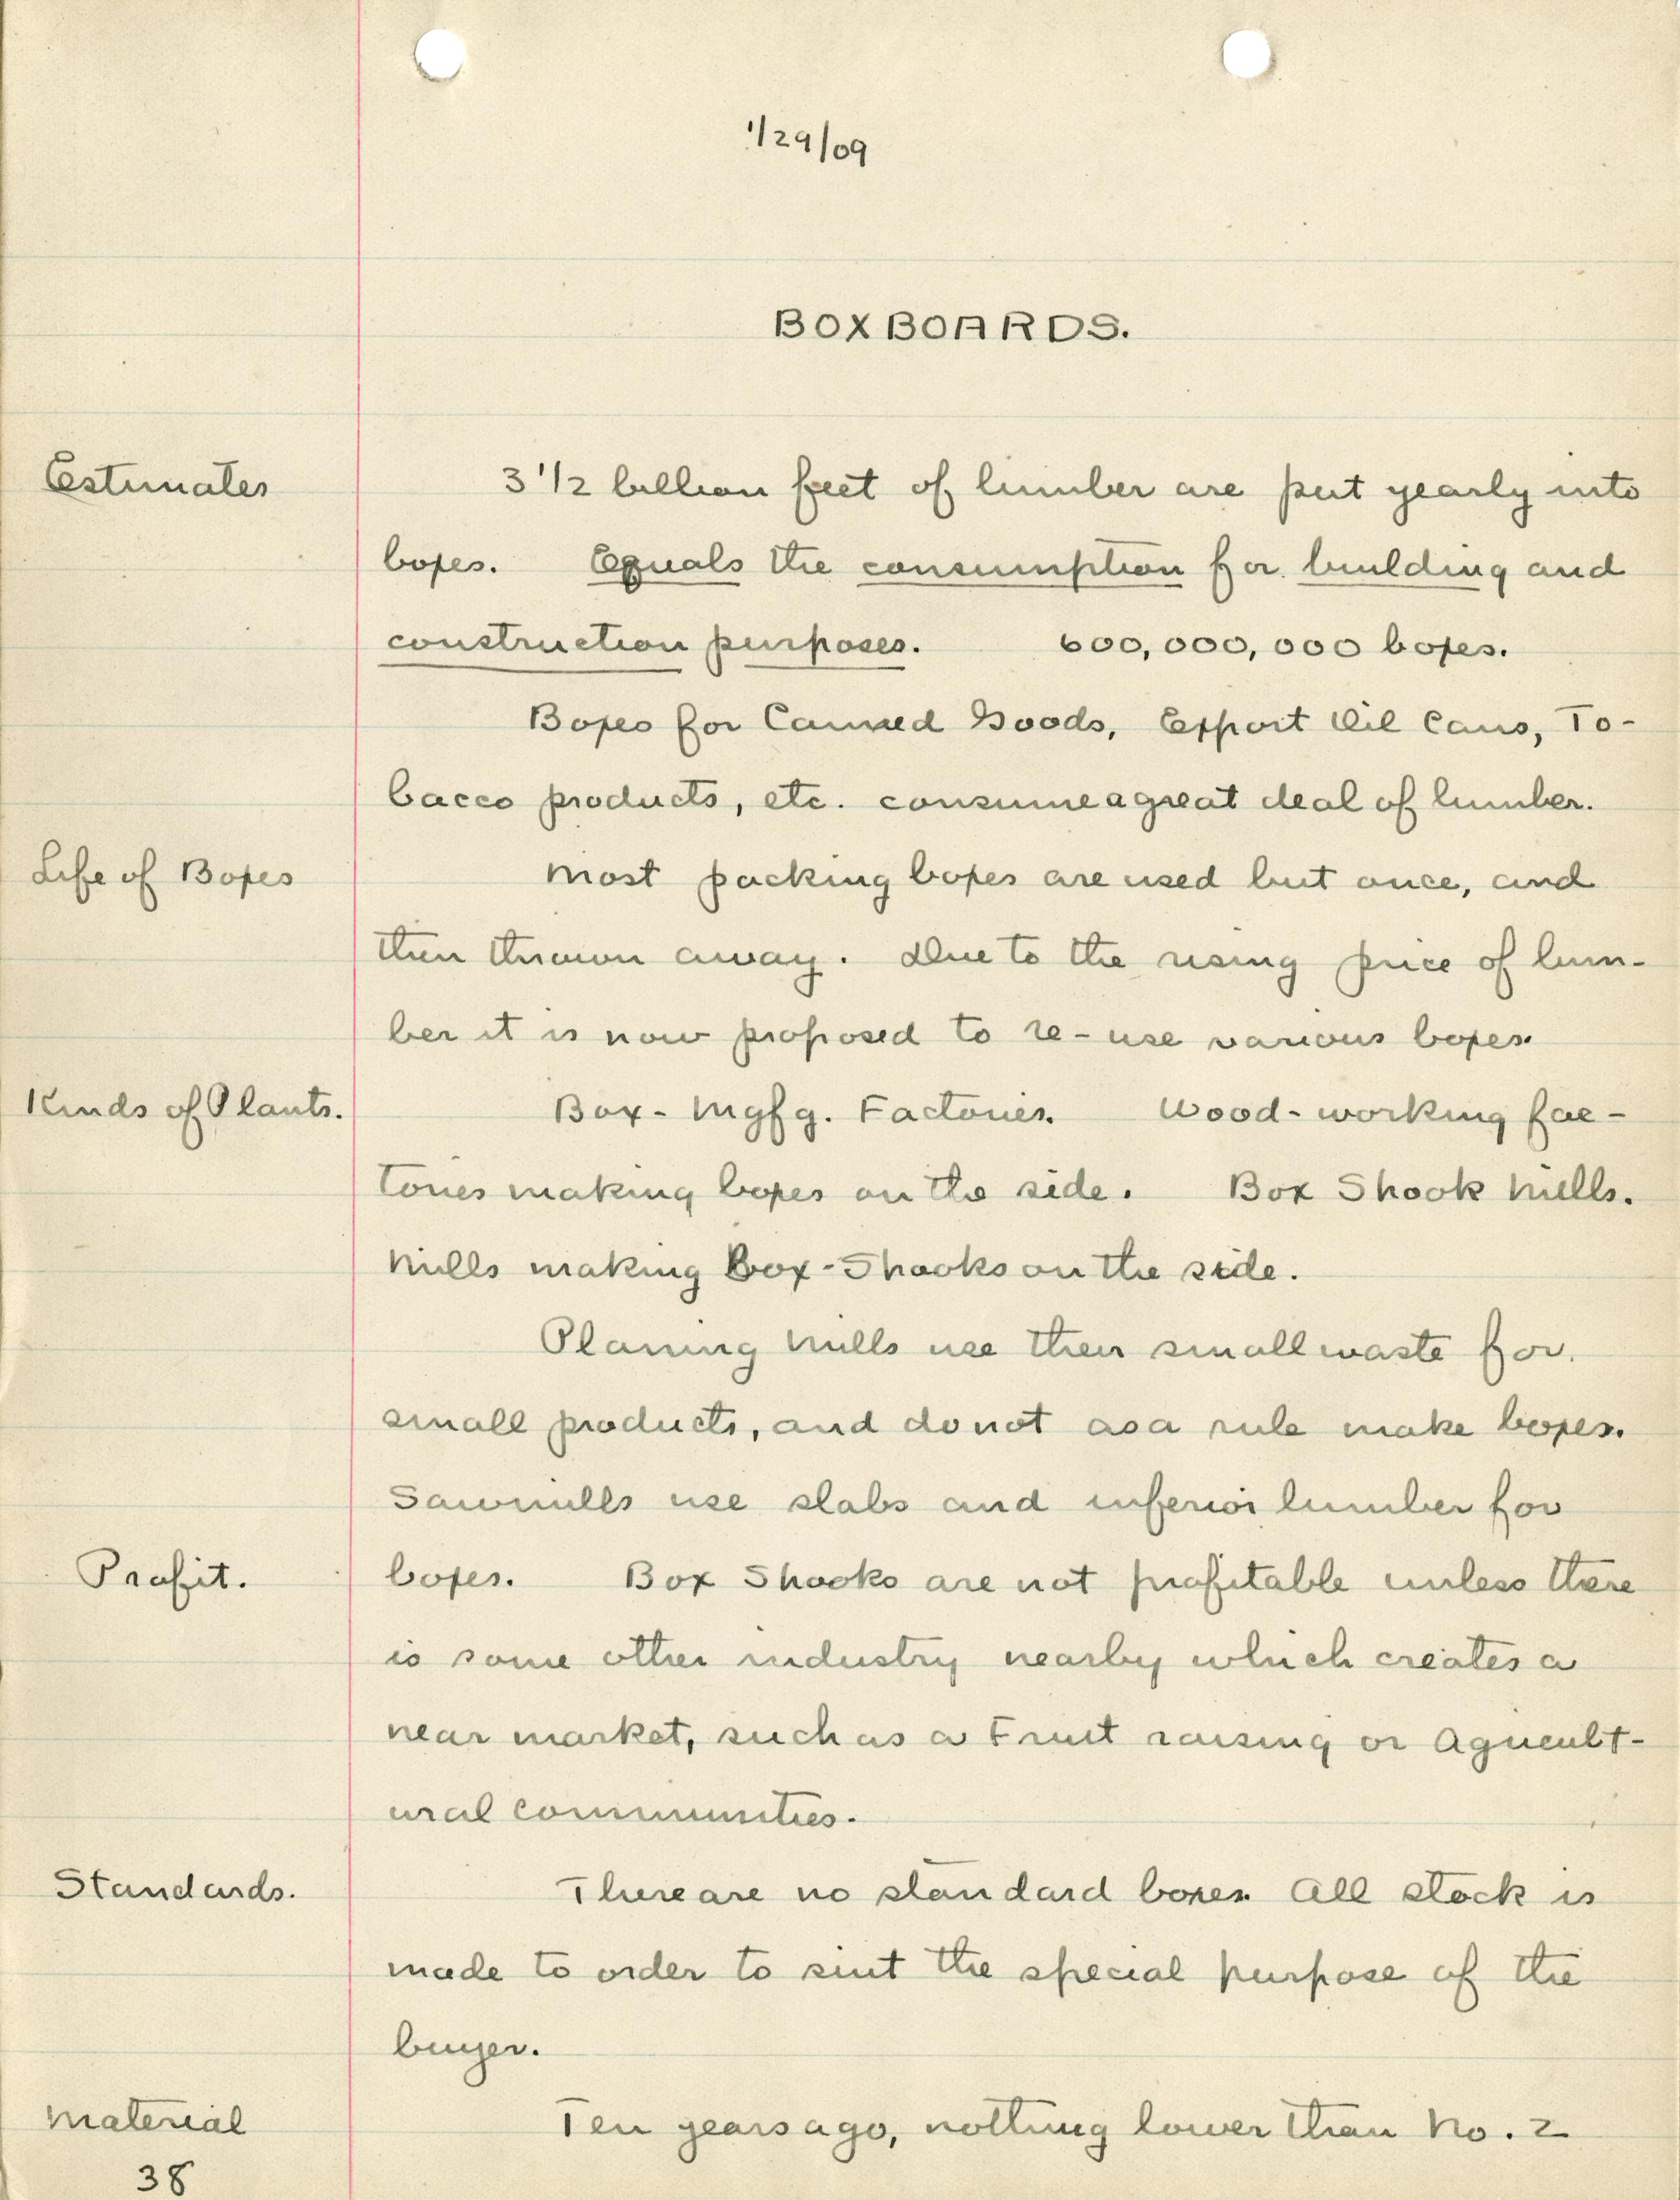 1/29/09
BOXBOARDS.
Estimates 3 1/2 billion feet of lumber are put yearly into
boxes. Equals the consumption for building and
construction purposes. 600,000,000 boxes.
Boxes for Canned Goods, Export Oil Cans, To-
bacco products, etc. consume a great deal of lumber.
Life of Boxes Most packing boxes are used but once, and
then thrown away. Due to the rising price of lum-
ber it is now proposed to re-use various boxes.
Kinds of Plants. Box-Mgfg. Factories. Wood-working fac-
tories making boxes on the side. Box Shook Mills.
Mills making Box-Shooks on the side.
Planing Mills use their small waste for
small products, and do not as a rule make boxes.
Sawmills use slabs and inferior lumber for
Profit. boxes. Box Shooks are not profitable unless there
is some other industry nearby which creates a
near market, such as a Fruit raising or Agricult-
ural communities.
Standards. There are no standard boxes. All stock is
made to order to suit the special purpose of the
buyer.
Material Ten years ago, nothing lower than No. 2
38